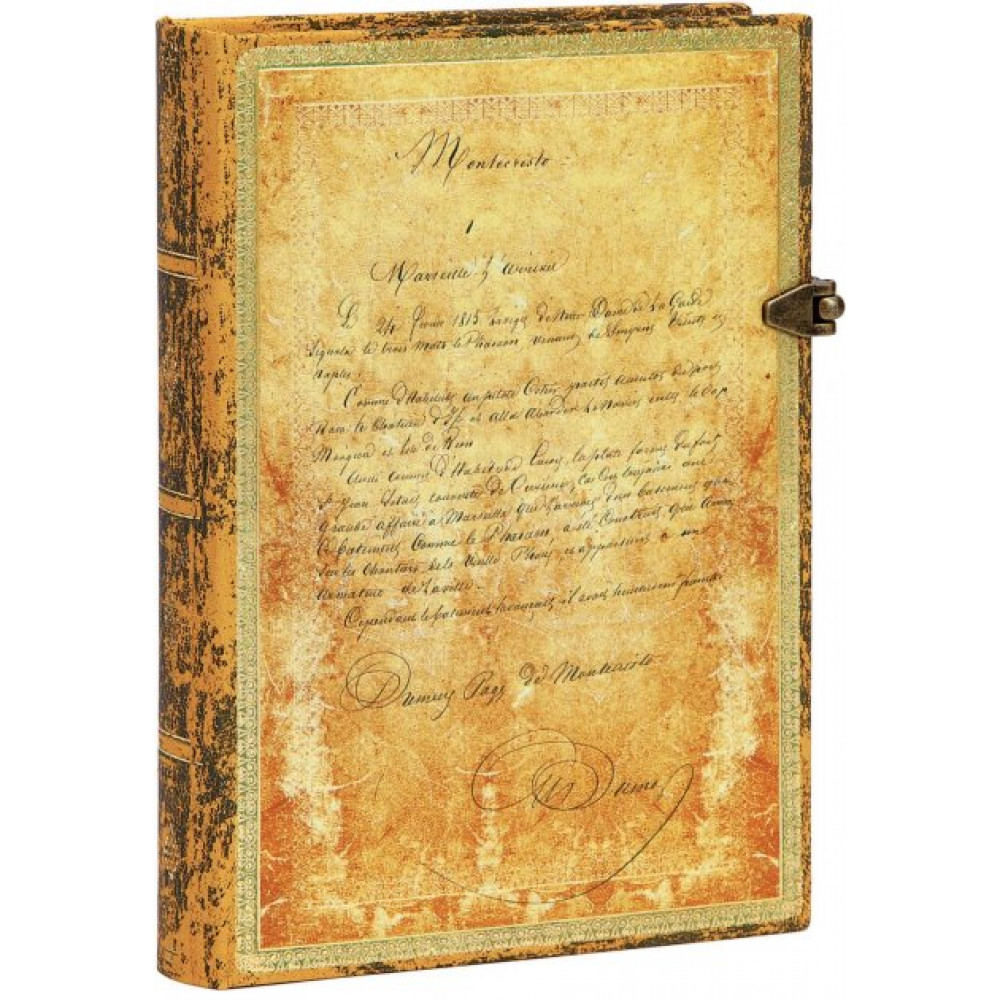 Montecristo
1
Marseille - L'arrivée
Le 24 Fevrier 1815 la vigie de Notre Dame de La Garde
signala le trois mats le Pharaon venant de Smyrne Trieste et
Naples.
Comme d'habitude un pilote cotier partit aussitot du port
Rasa le chateau d'If et alla aborder le Navire entre le Cap
Morgiou et l'ile de Rion
Aussi comme d'habitude la plate forme du fort
St Jean s'etait couverte de Curieux, car c'est toujours une
grande affaire à Marseille que l'arrivée d'un batiment quand
ce batiment comme le Pharaon, a été construit
sur les chantiers de la vieille Phocée, et appartient a un
armateur de la ville.
Cependant le batiment s'avançait il avait heureusement franchi
de Montecristo
Dumas